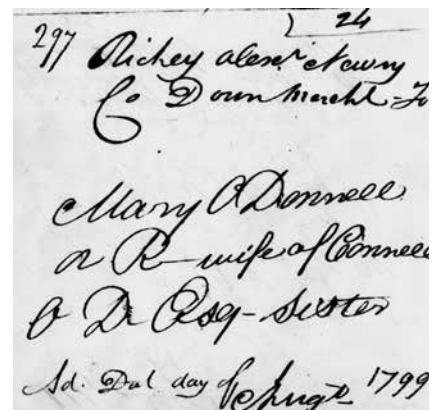 24
297 Richey Alexr Newry
Co Down Mercht - To
Mary O Donnell
or R— wife of Connell
O D Esq - Sister
Ad. Dat day of Augt 1799